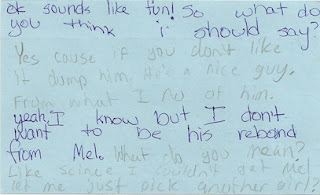 ok sounds like fun! So what do
you think i should say?
Yes cause if you don't like
it dump him. He's a nice guy.
From what I no of him.
yeah I know but I don't
want to be his rebond
from Mel. What do you mean?
Like scince I couldn't get Mel
let me just pick another girl?